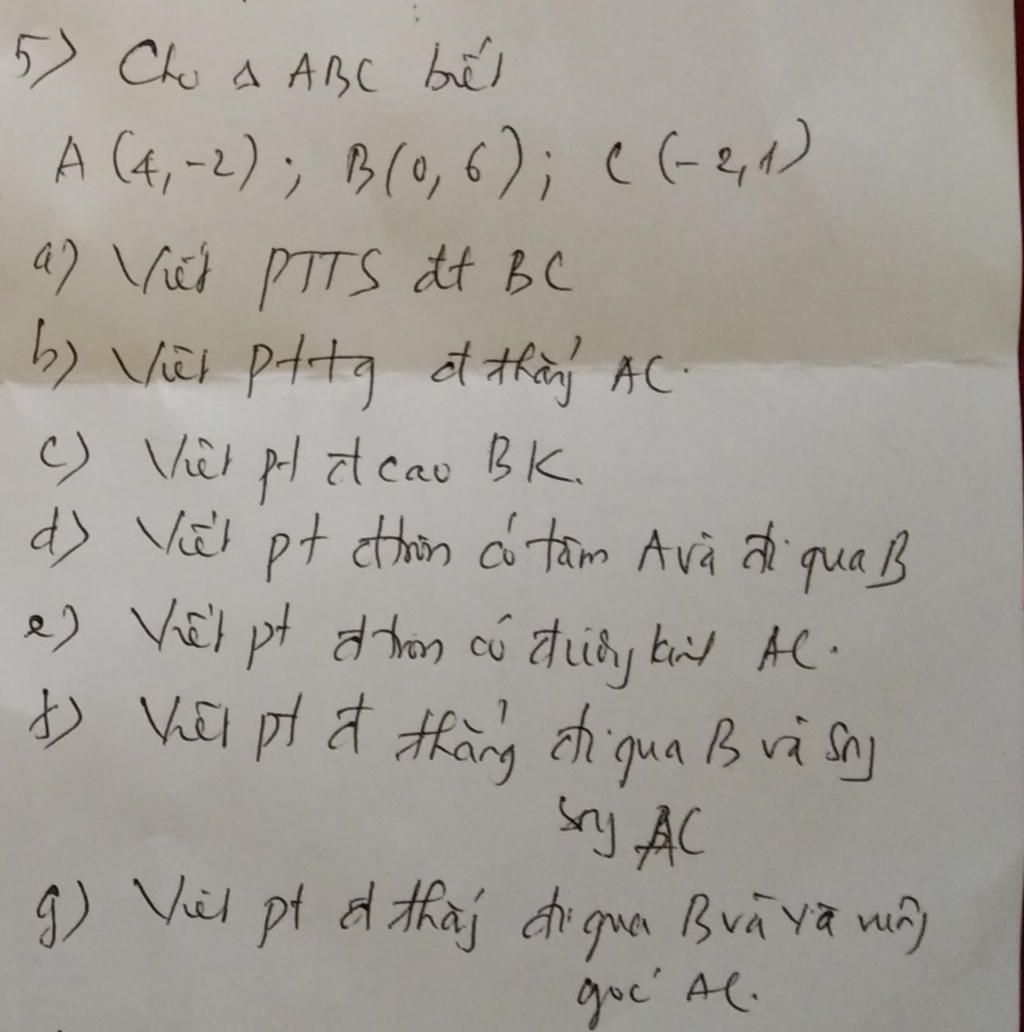 5) Cho Δ ABC biết
A (4,-2); B(0, 6); C (-2,1)
a) Viết PTTS đt BC
b) Viết pttq đ thẳng AC.
c) Viết pt đ cao BK.
d) Viết pt đ tròn có tâm A và đi qua B
e) Viết pt đ tròn có đường kính AC.
f) Viết pt đ thẳng đi qua B và song
song AC
g) Viết pt đ thẳng đi qua B và và vuông
góc AC.